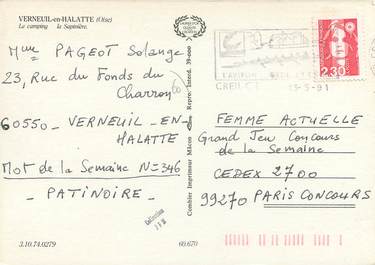 VERNEUIL-en-HALATTE (Oise)
Le camping la Sapinière.
Mme PAGEOT Solange
23, Rue du Fonds du
Charron
60550 - VERNEUIL-EN-
HALATTE
Mot de la Semaine N=346
- PATINOIRE -
3.10.74.0279
60.670
Combier Imprimeur Mâcon
Repr. Interd. 39-000
CREIL
13-5-91
2,30
FEMME ACTUELLE
Grand Jeu Concours
de la Semaine
CEDEX 2700
99270 PARIS CONCOURS